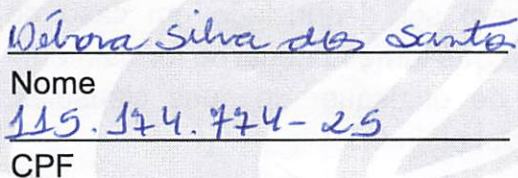 Débora Silva dos Santos
Nome
115.174.774-25
CPF